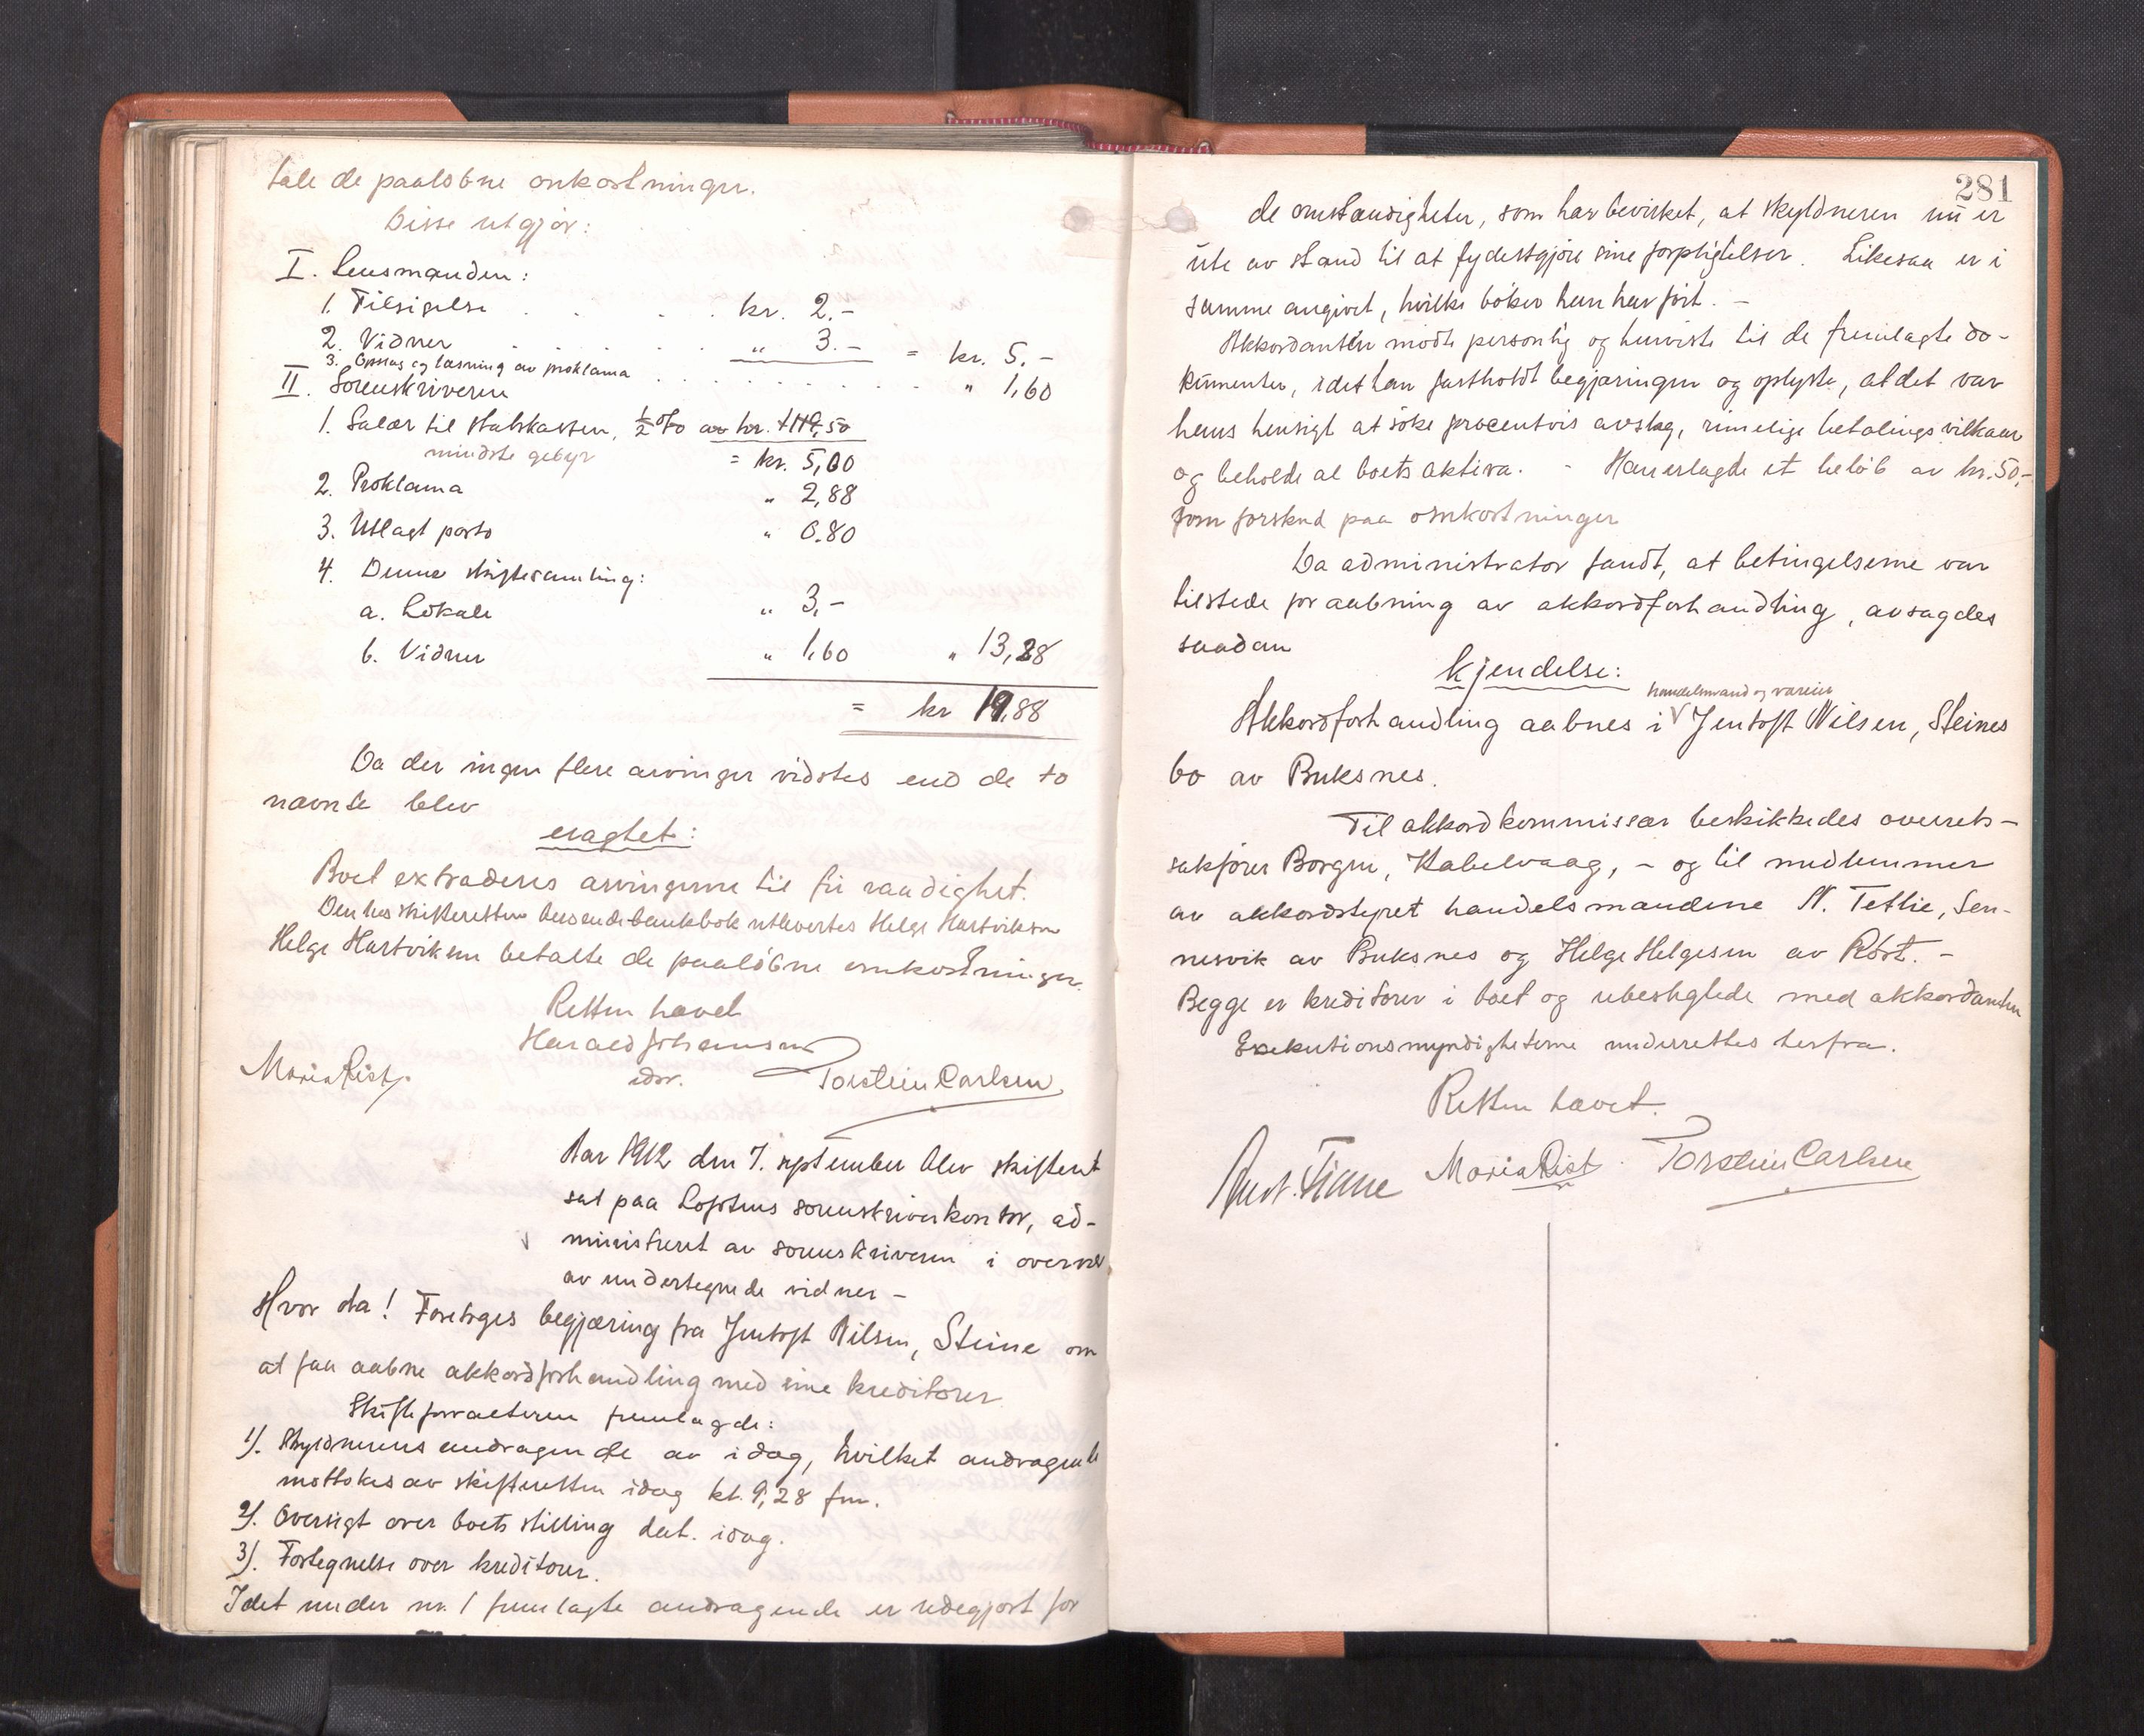 tale de paaløbne omkostninger.
Disse utgjør:
I. Lensmanden:
1. Tilsigelse . . . kr. 2.-
2. Vidner . . . . " 3.- = kr. 5,-
3. Opslag og læsning av proklama . . . . . . . . . " 1,60
II. Sorenskriveren
1. Salær til statskassen, ½ % av kr.
mindste gebyr = kr. 5,00
2. Proklama " 2,88
3. Utlagt porto " 0.80
4. Denne skiftesamling:
a. Lokale " 3,-
b. Vidner " 1,60 " 13,28
= kr 19,88
Da der ingen flere arvinger vidstes end de to
nævnte blev
eragtet:
Boet extraderes arvingerne til fri raadighet.
Den hos skifteretten beroende bankbok utlevertes Helge Hartviksen
Helge Hartviksen betalte de paaløbne omkostninger.
Retten hævet
Harald Johannsen
Maria Rist. edsv. Torstein Carlsen
Aar 1912 den 7. september blev skifteret
sat paa Lofotens sorenskriverkontor, ad-
ministreret av sorenskriveren i overvær
av undertegnede vidner -
Hvor da! Foretages begjæring fra Jentoft Nilsen, Steine om
at faa aabne akkordforhandling med sine kreditorer
Skifteforvalteren fremlagde:
1). Skyldnerens andragende av idag, hvilket andragende
mottokes av skifteretten idag kl. 9,28 fm.
2). Oversigt over boets stilling dat. idag.
3). Fortegnelse over kreditorer.
I det under nr. 1 fremlagte andragende er redegjort for
281
de omstændigheter, som har bevirket, at skyldneren nu er
ute av stand til at fyldestgjøre sine forpligtelser. Likesaa er i
samme angivet, hvilke bøker han har ført. -
Akkordanten mødte personlig og henviste til de fremlagte do-
kumenter, idet han fastholdt begjæringen og oplyste, at det var
hans hensigt at søke procentvis avslag, rimelige betalingsvilkaar
og beholde al boets aktiva. - Han erlagde et beløb av kr. 50,-
som forskud paa omkostninger
Da administrator fandt, at betingelserne var
tilstede for aabning av akkordforhandling, avsagdes
saadan
kjendelse:
handelsmand og væreier
Akkordforhandling aabnes i Jentoft Nilsen, Steines
bo av Buksnes.
Til akkordkommissær beskikkedes overrets-
sakfører Borgen, Kabelvaag, - og til medlemmer
av akkordstyret handelsmændene N. Tetlie, Sen-
nesvik av Buksnes og Helge Helgesen av Røst. -
Begge er kreditorer i boet og ubeslegtede med akkordanten
Exekutionsmyndigheterne underrettes herfra.
Retten hævet.
Maria Rist. Torstein Carlsen